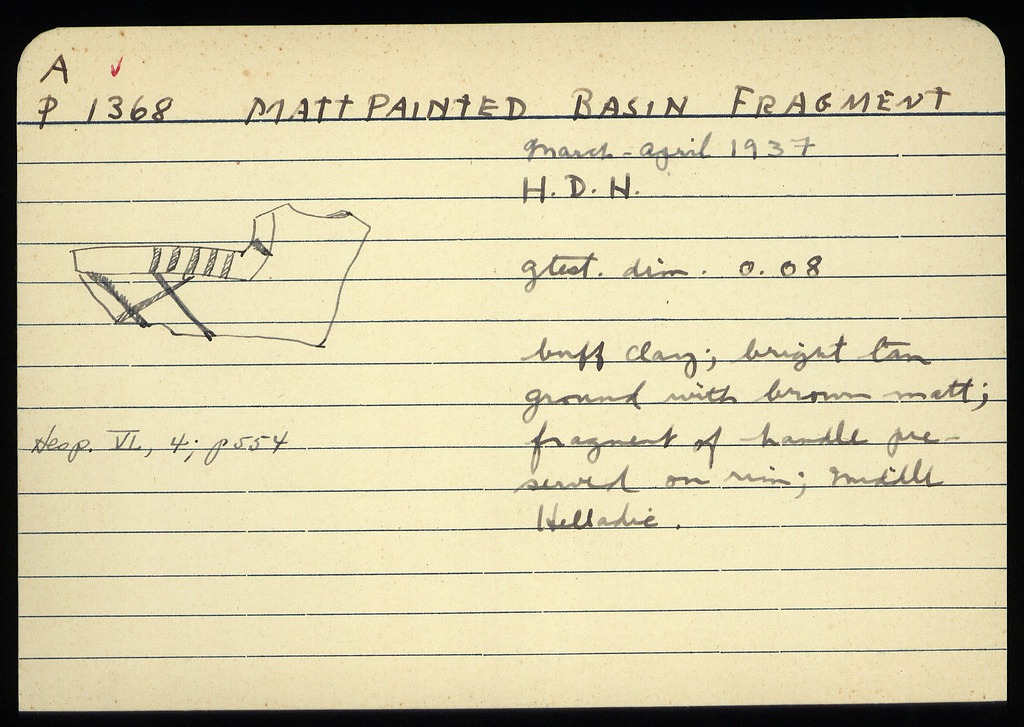 A ✓
P 1368 MATTPAINTED BASIN FRAGMENT
March-April 1937
H. D. H.
gtest. dim. 0.08
buff clay; bright tan
ground with brown matt;
Hesp. VI, 4; p554
fragment of handle pre-
served on rim; Middle
Helladic.